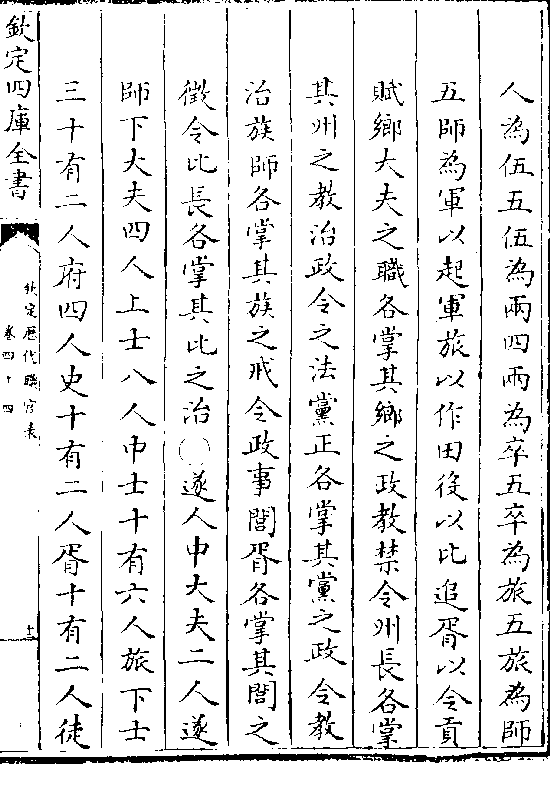 人為伍五伍為兩四兩為卒五卒為旅五旅為師
五師為軍以起軍旅以作田役以比追胥以令貢
賦鄉大夫之職各掌其鄉之政教禁令州長各掌
其州之教治政令之法黨正各掌其黨之政令教
治族師各掌其族之戒令政事閭胥各掌其閭之
徵令比長各掌其比之治○遂人中大夫二人遂
師下大夫四人上士八人中士十有六人旅下士
三十有二人府四人史十有二人胥十有二人徒
欽定四庫全書
欽定歷代職官表
卷四十四
十二